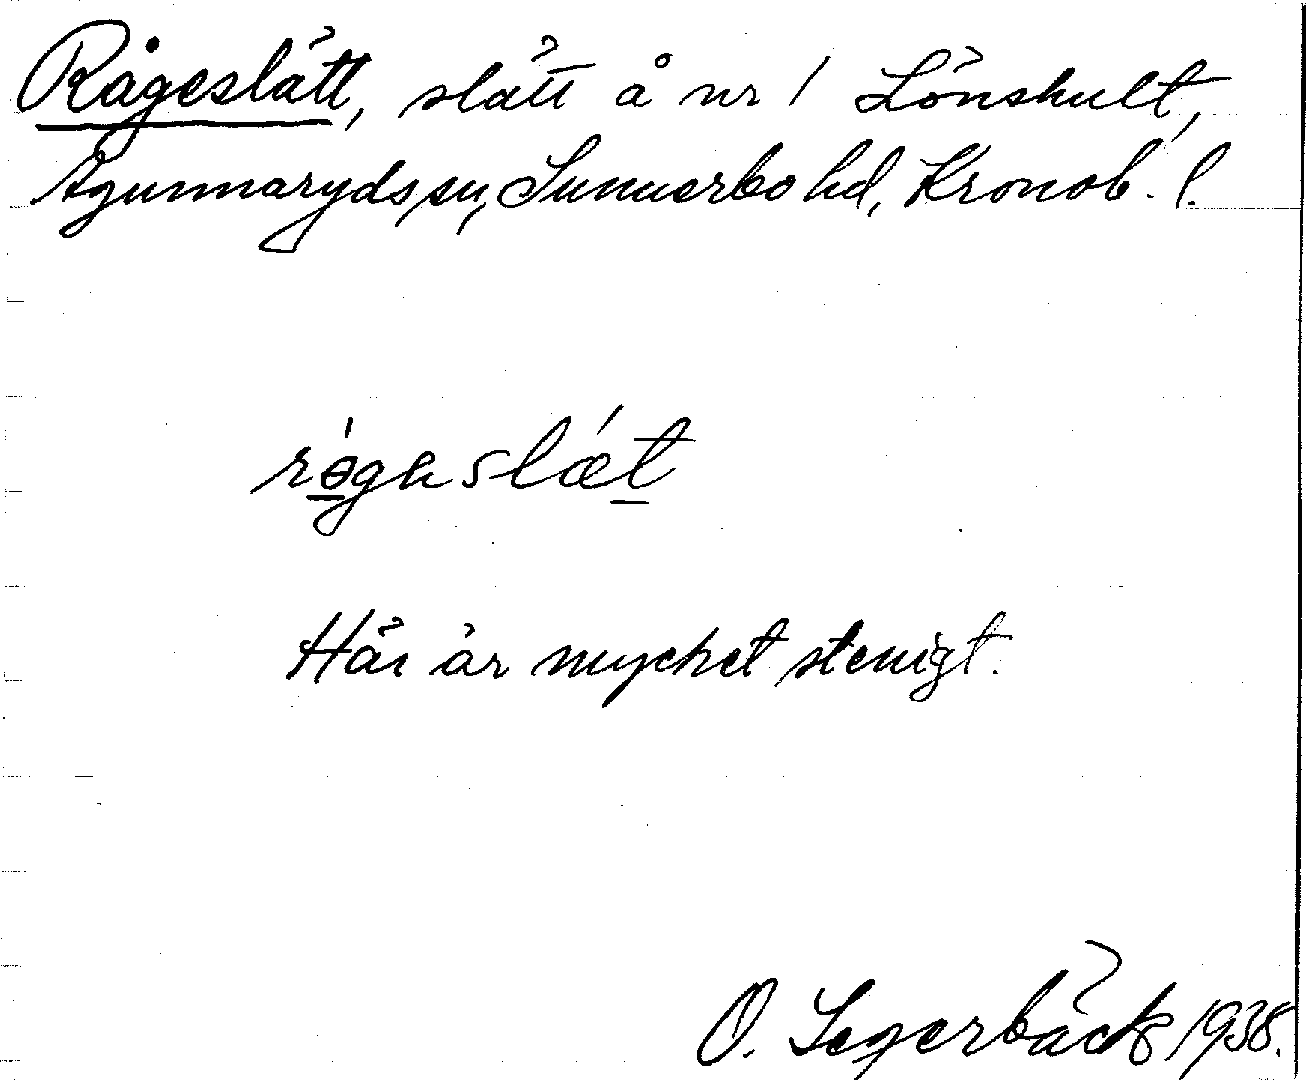 Rågeslätt, slätt å nr 1 Lönshult,
Agunnaryds sn, Sunnerbo hd, Kronob. l.
rǿgaslǽt
Här är mycket stenigt.
O. Segerbäck 1938.